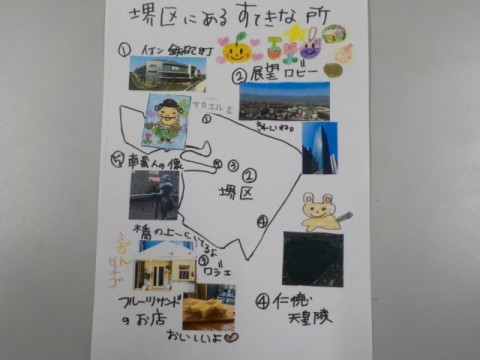 堺区にあるすてきな所
① イオン鉄砲町
② 展望ロビー
きれいね。
①
⑤ 南蛮人の像
⑤ ③
②
堺区
④
橋の上にいてるよ
③ ロジェ
みかん
イチゴ
フルーツサンド
のお店
おいしいよ
④ 仁徳
天皇陵